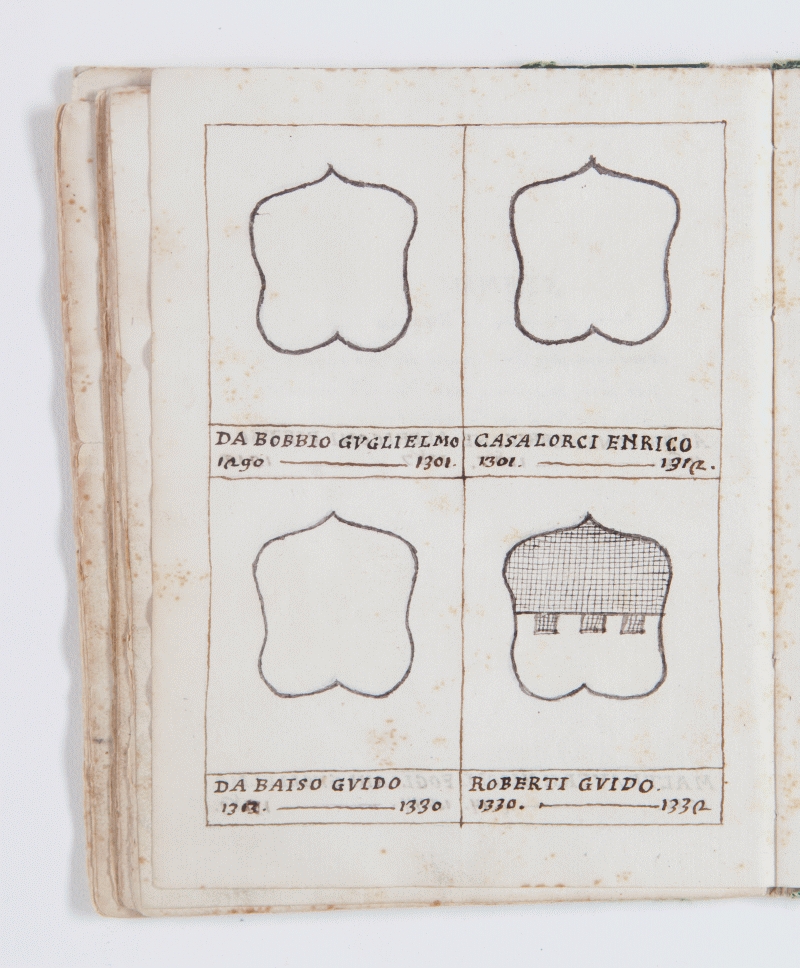 DA BOBBIO GVGLIELMO
1290 1301.
CASALORCI ENRICO
1301. 1312.
DA BAISO GVIDO
1330
ROBERTI GVIDO.
1330. 1332